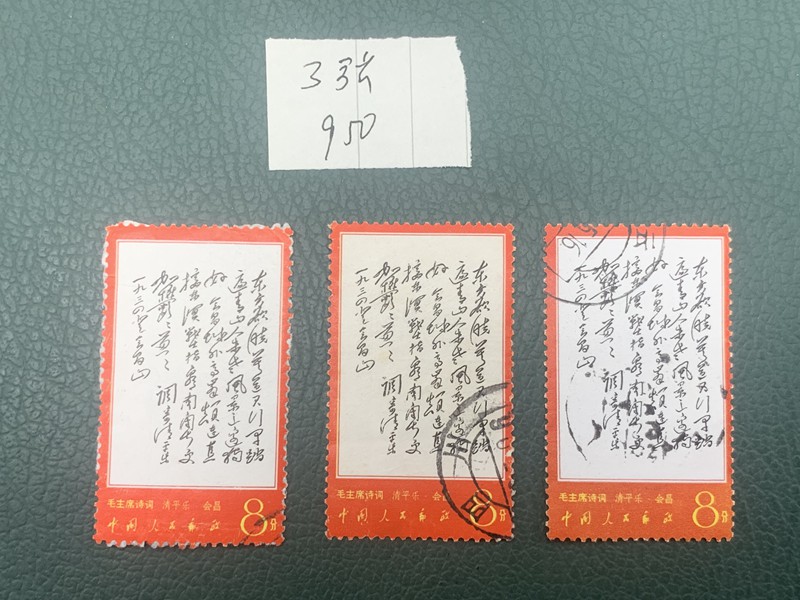 3张
950
东方欲晓莫道君行早踏
遍青山人未老风景这边独
好 会昌城外高峰颠连直
接东溟战士指看南粤更
加郁郁葱葱 调寄清平乐
一九三四年登会昌山
毛主席诗词 清平乐·会昌
中国人民邮政 8分
东方欲晓莫道君行早踏
遍青山人未老风景这边独
好 会昌城外高峰颠连直
接东溟战士指看南粤更
加郁郁葱葱 调寄清平乐
一九三四年登会昌山
毛主席诗词 清平乐·会昌
中国人民邮政 8分
东方欲晓莫道君行早踏
遍青山人未老风景这边独
好 会昌城外高峰颠连直
接东溟战士指看南粤更
加郁郁葱葱 调寄清平乐
一九三四年登会昌山
毛主席诗词 清平乐·会昌
中国人民邮政 8分